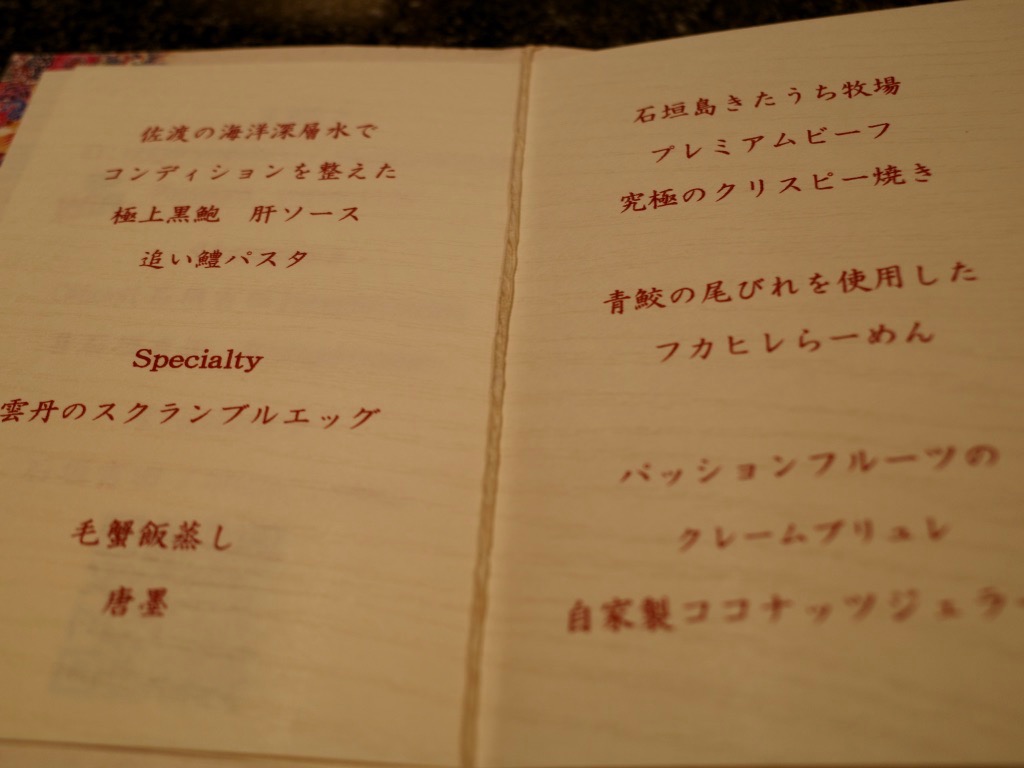 佐渡の海洋深層水で
コンディションを整えた
極上黒鮑　肝ソース
追い鱧パスタ
Specialty
雲丹のスクランブルエッグ
毛蟹飯蒸し
唐墨
石垣島きたうち牧場
プレミアムビーフ
究極のクリスピー焼き
青鮫の尾びれを使用した
フカヒレらーめん
パッションフルーツの
クレームブリュレ
自家製ココナッツジェラー